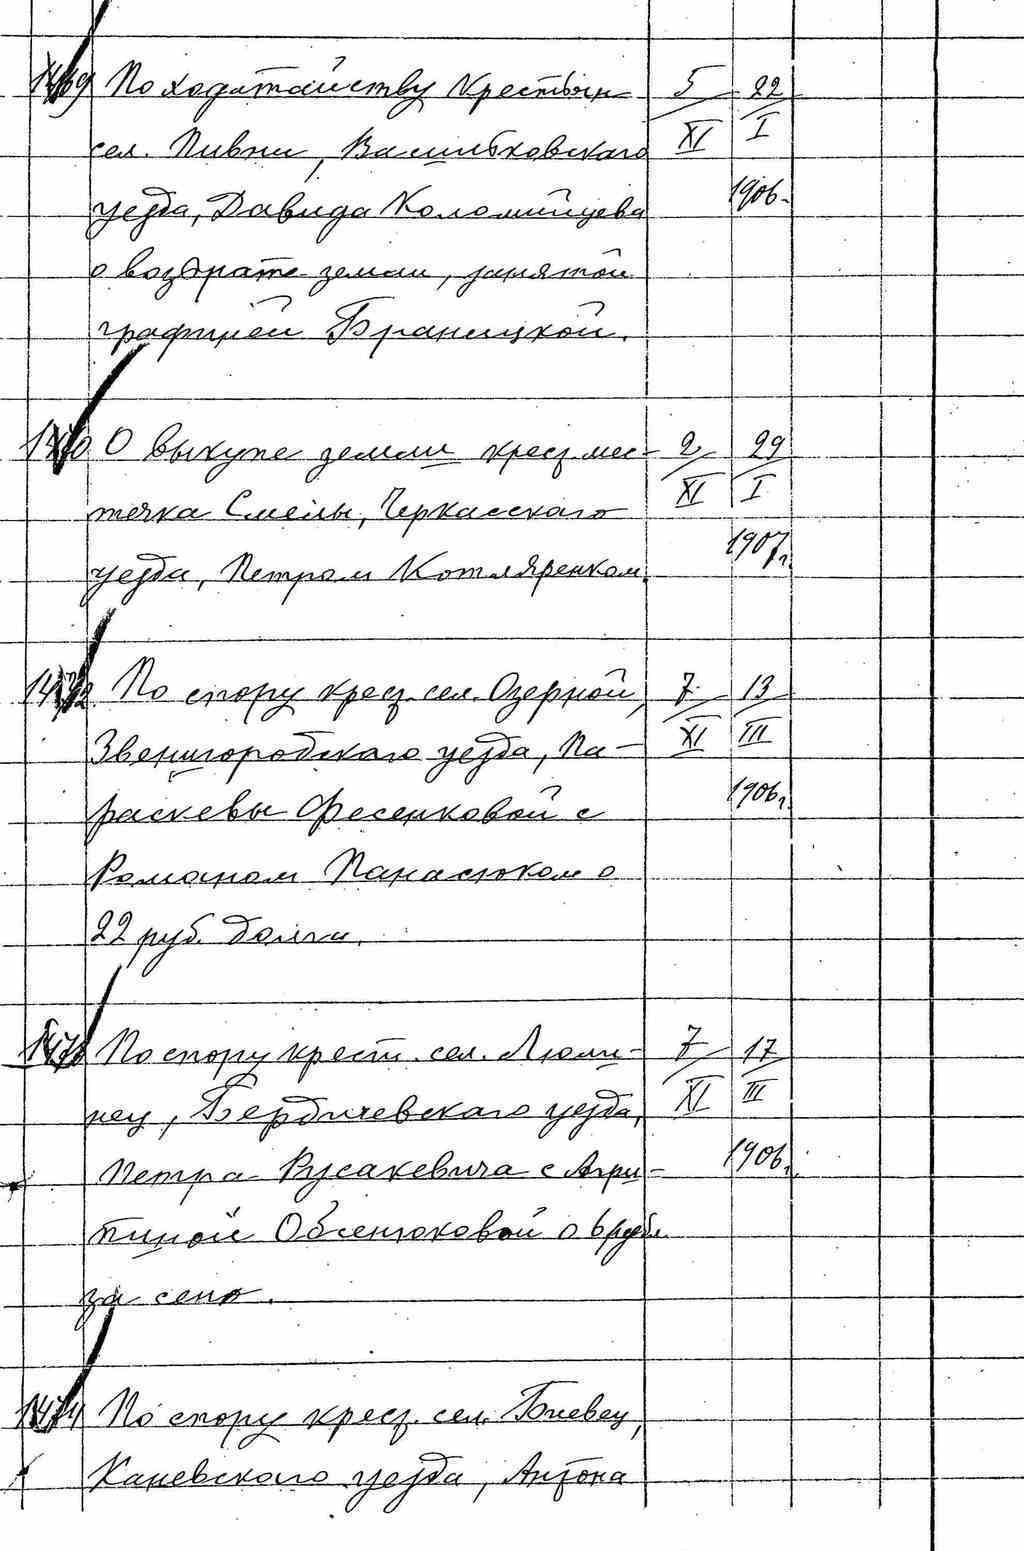 1469 По ходатайству крестьян 5/XI 22/I
сел. Пивни, Васильковского
уезда, Давида Коломийцева 1906.
о возврате земли, занятой
графиней Браницкой.
1470 О выкупе земли крест. мес- 2/XI 29/I
течка Смелы, Черкасского
уезда, Петром Котляренком. 1907г.
1472 По спору крест. сел. Озерной, 7/XI 13/III
Звенигородского уезда, Па-
раскевы Фесенковой с 1906г.
Романом Панасюком о
22 руб. долга.
147 По спору крест. сел. Люли- 7/XI 17/III
нец, Бердичевского уезда,
Петра Русакевича с Агри- 1906г.
пиной Овсенюковой о 6 рубл.
за сено.
1474 По спору крест. сел.
Каневского уезда, Антона